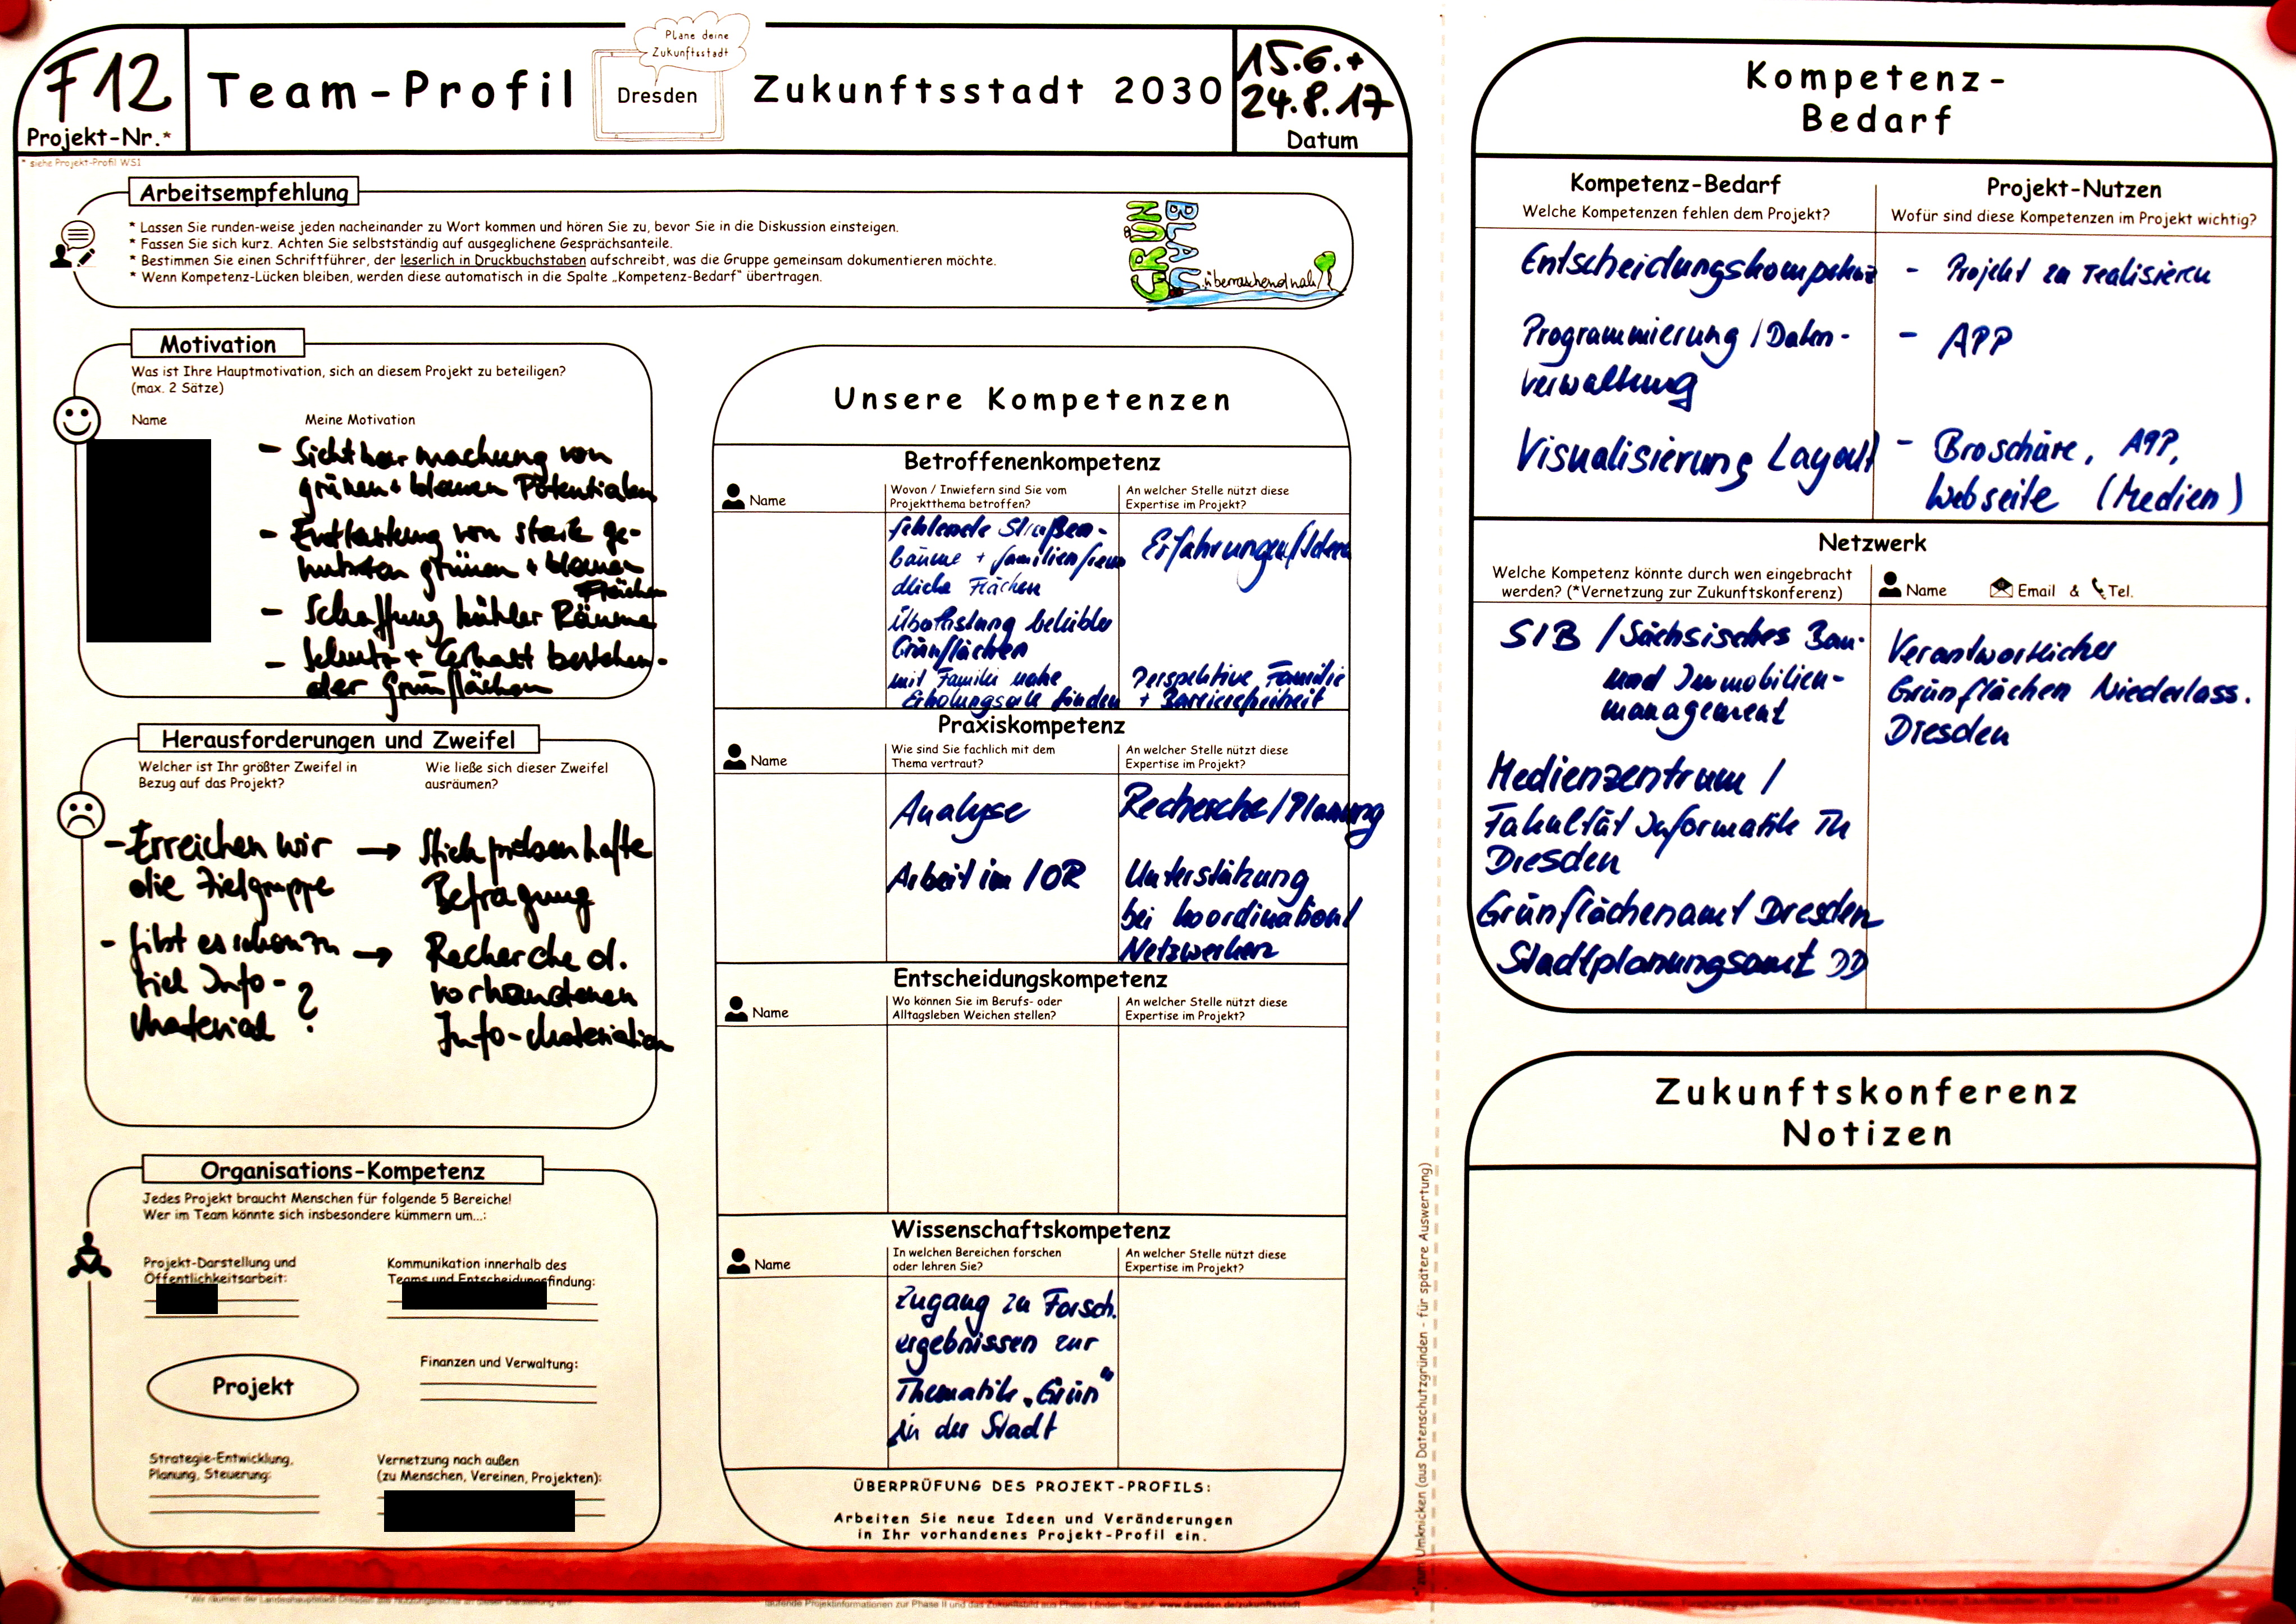 F12
Projekt-Nr.*
* siehe Projekt-Profil WS1
Team-Profil
Plane deine
Zukunftsstadt
Dresden
Zukunftsstadt 2030
15.6.+
24.8.17
Datum
Arbeitsempfehlung
* Lassen Sie runden-weise jeden nacheinander zu Wort kommen und hören Sie zu, bevor Sie in die Diskussion einsteigen.
* Fassen Sie sich kurz. Achten Sie selbstständig auf ausgeglichene Gesprächsanteile.
* Bestimmen Sie einen Schriftführer, der leserlich in Druckbuchstaben aufschreibt, was die Gruppe gemeinsam dokumentieren möchte.
* Wenn Kompetenz-Lücken bleiben, werden diese automatisch in die Spalte „Kompetenz-Bedarf" übertragen.
GRÜN &
BLAU
...überraschend nah
Motivation
Was ist Ihre Hauptmotivation, sich an diesem Projekt zu beteiligen?
(max. 2 Sätze)
Name
Meine Motivation
- Sichtbarmachung von
grünen + blauen Potentialen
- Entlastung von stark ge-
nutzten grünen + blauen
Flächen
- Schaffung kühler Räume
- Schutz + Erhalt bestehen-
der Grünflächen
Herausforderungen und Zweifel
Welcher ist Ihr größter Zweifel in
Bezug auf das Projekt?
Wie ließe sich dieser Zweifel
ausräumen?
- Erreichen wir → Stichprobenhafte
die Zielgruppe Befragung
- Gibt es schon zu → Recherche d.
viel Info- vorhandenen
Material ? Info-Materialien
Organisations-Kompetenz
Jedes Projekt braucht Menschen für folgende 5 Bereiche!
Wer im Team könnte sich insbesondere kümmern um...:
Projekt-Darstellung und
Öffentlichkeitsarbeit:
Kommunikation innerhalb des
Teams und Entscheidungsfindung:
Projekt
Finanzen und Verwaltung:
Strategie-Entwicklung,
Planung, Steuerung:
Vernetzung nach außen
(zu Menschen, Vereinen, Projekten):
Unsere Kompetenzen
Betroffenenkompetenz
Name
Wovon / Inwiefern sind Sie vom
Projektthema betroffen?
An welcher Stelle nützt diese
Expertise im Projekt?
fehlende Straßen-
bäume + familienfreun
dliche Flächen
Erfahrungen/Ideen
Überlastung beliebter
Grünflächen
mit Familie nahe
Erholungsorte finden
Perspektive Familie
+ Barrierefreiheit
Praxiskompetenz
Name
Wie sind Sie fachlich mit dem
Thema vertraut?
An welcher Stelle nützt diese
Expertise im Projekt?
Analyse
Recherche/Planung
Arbeit im IÖR
Unterstützung
bei Koordination/
Netzwerken
Entscheidungskompetenz
Name
Wo können Sie im Berufs- oder
Alltagsleben Weichen stellen?
An welcher Stelle nützt diese
Expertise im Projekt?
Wissenschaftskompetenz
Name
In welchen Bereichen forschen
oder lehren Sie?
An welcher Stelle nützt diese
Expertise im Projekt?
Zugang zu Forsch.
ergebnissen zur
Thematik „Grün"
in der Stadt
ÜBERPRÜFUNG DES PROJEKT-PROFILS:
Arbeiten Sie neue Ideen und Veränderungen
in Ihr vorhandenes Projekt-Profil ein.
zum Umknicken (aus Datenschutzgründen - für spätere Auswertung)
Kompetenz-
Bedarf
Kompetenz-Bedarf
Welche Kompetenzen fehlen dem Projekt?
Projekt-Nutzen
Wofür sind diese Kompetenzen im Projekt wichtig?
Entscheidungskompetenz - Projekt zu realisieren
Programmierung / Daten- - APP
verwaltung
Visualisierung Layout - Broschüre, APP,
Webseite (Medien)
Netzwerk
Welche Kompetenz könnte durch wen eingebracht
werden? (*Vernetzung zur Zukunftskonferenz)
Name Email & Tel.
SIB / Sächsisches Bau-
und Immobilien-
management
Verantwortlicher
Grünflächen Niederlass.
Dresden
Medienzentrum /
Fakultät Informatik TU
Dresden
Grünflächenamt Dresden
Stadtplanungsamt DD
Zukunftskonferenz
Notizen
laufende Projektinformationen zur Phase II und das Zukunftsbild aus Phase I finden Sie auf: www.dresden.de/zukunftsstadt